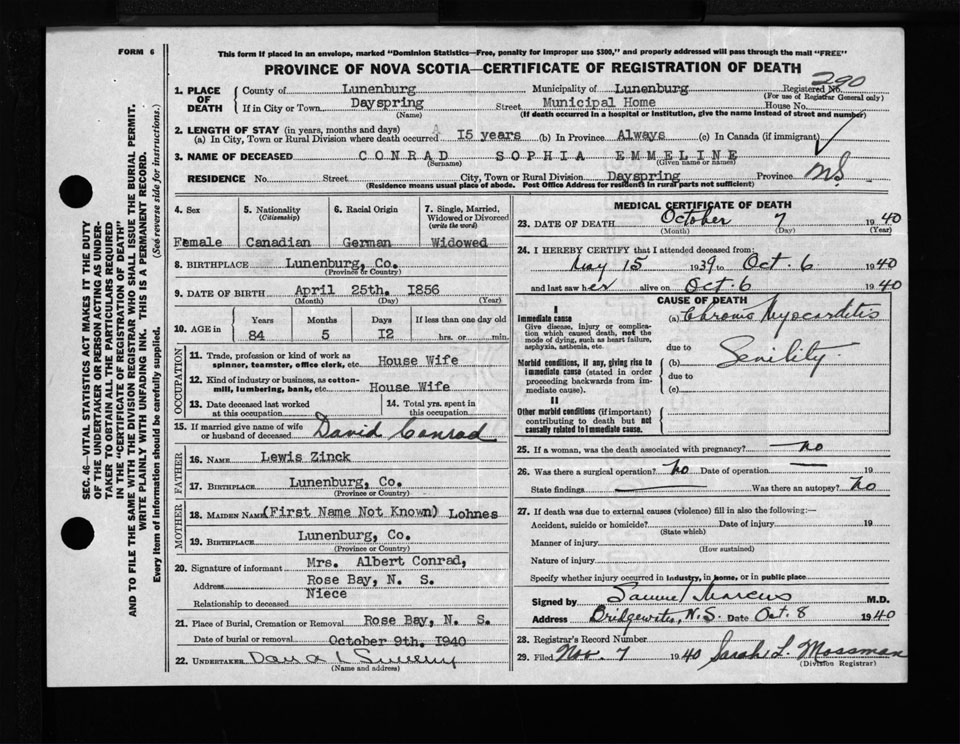 FORM 6
This form if placed in an envelope, marked "Dominion Statistics—Free, penalty for improper use $300," and properly addressed will pass through the mail "FREE"
PROVINCE OF NOVA SCOTIA—CERTIFICATE OF REGISTRATION OF DEATH
290
1. PLACE OF DEATH
County of Lunenburg Municipality of Lunenburg Registered No.
(For use of Registrar General only)
If in City or Town Dayspring Street Municipal Home House No.
(Name) (If death occurred in a hospital or institution, give the name instead of street and number)
2. LENGTH OF STAY (in years, months and days)
(a) In City, Town or Rural Division where death occurred 15 years (b) In Province Always (c) In Canada (if immigrant)
3. NAME OF DECEASED CONRAD SOPHIA EMMELINE
(Surname) (Given name or names)
RESIDENCE No. Street City, Town or Rural Division Dayspring Province NS
(Residence means usual place of abode. Post Office Address for residents in rural parts not sufficient)
4. Sex 5. Nationality (Citizenship) 6. Racial Origin 7. Single, Married, Widowed or Divorced (write the word)
Female Canadian German Widowed
8. BIRTHPLACE Lunenburg, Co.
(Province or Country)
9. DATE OF BIRTH April 25th. 1856
(Month) (Day) (Year)
10. AGE in Years Months Days If less than one day old
84 5 12 hrs. or min.
OCCUPATION
11. Trade, profession or kind of work as spinner, teamster, office clerk, etc. House Wife
12. Kind of industry or business, as cotton-mill, lumbering, bank, etc. House Wife
13. Date deceased last worked at this occupation
14. Total yrs. spent in this occupation
15. If married give name of wife or husband of deceased David Conrad
FATHER
16. NAME Lewis Zinck
17. BIRTHPLACE Lunenburg, Co.
(Province or Country)
MOTHER
18. MAIDEN NAME (First Name Not Known) Lohnes
19. BIRTHPLACE Lunenburg, Co.
(Province or Country)
20. Signature of informant Mrs. Albert Conrad,
Address Rose Bay, N. S.
Relationship to deceased Niece
21. Place of Burial, Cremation or Removal Rose Bay, N. S.
Date of burial or removal October 9th. 1940
22. UNDERTAKER
(Name and address)
MEDICAL CERTIFICATE OF DEATH
23. DATE OF DEATH October 7 1940
(Month) (Day) (Year)
24. I HEREBY CERTIFY that I attended deceased from:
May 15 1939 to Oct. 6 1940
and last saw her alive on Oct. 6 1940
CAUSE OF DEATH
I
Immediate cause
Give disease, injury or complication which caused death, not the mode of dying, such as heart failure, asphyxia, asthenia, etc.
(a) Chronic Myocarditis
due to
Morbid conditions, if any, giving rise to immediate cause (stated in order proceeding backwards from immediate cause).
(b) Senility
due to
(c)
II
Other morbid conditions (if important) contributing to death but not causally related to immediate cause.
25. If a woman, was the death associated with pregnancy? no
26. Was there a surgical operation? no Date of operation 19
State findings Was there an autopsy? no
27. If death was due to external causes (violence) fill in also the following:—
Accident, suicide or homicide? Date of injury 19
(State which)
Manner of injury
(How sustained)
Nature of injury
Specify whether injury occurred in industry, in home, or in public place
Signed by Samuel Marcus M.D.
Address Bridgewater, N.S. Date Oct. 8 1940
28. Registrar's Record Number
29. Filed Nov. 7 1940 Sarah L. Mossman
(Division Registrar)
SEC. 46—VITAL STATISTICS ACT MAKES IT THE DUTY
OF THE UNDERTAKER OR PERSON ACTING AS UNDER-
TAKER TO OBTAIN ALL THE PARTICULARS REQUIRED
IN THE "CERTIFICATE OF REGISTRATION OF DEATH"
AND TO FILE THE SAME WITH THE DIVISION REGISTRAR WHO SHALL ISSUE THE BURIAL PERMIT.
WRITE PLAINLY WITH UNFADING INK. THIS IS A PERMANENT RECORD.
Every item of information should be carefully supplied. (See reverse side for instructions.)